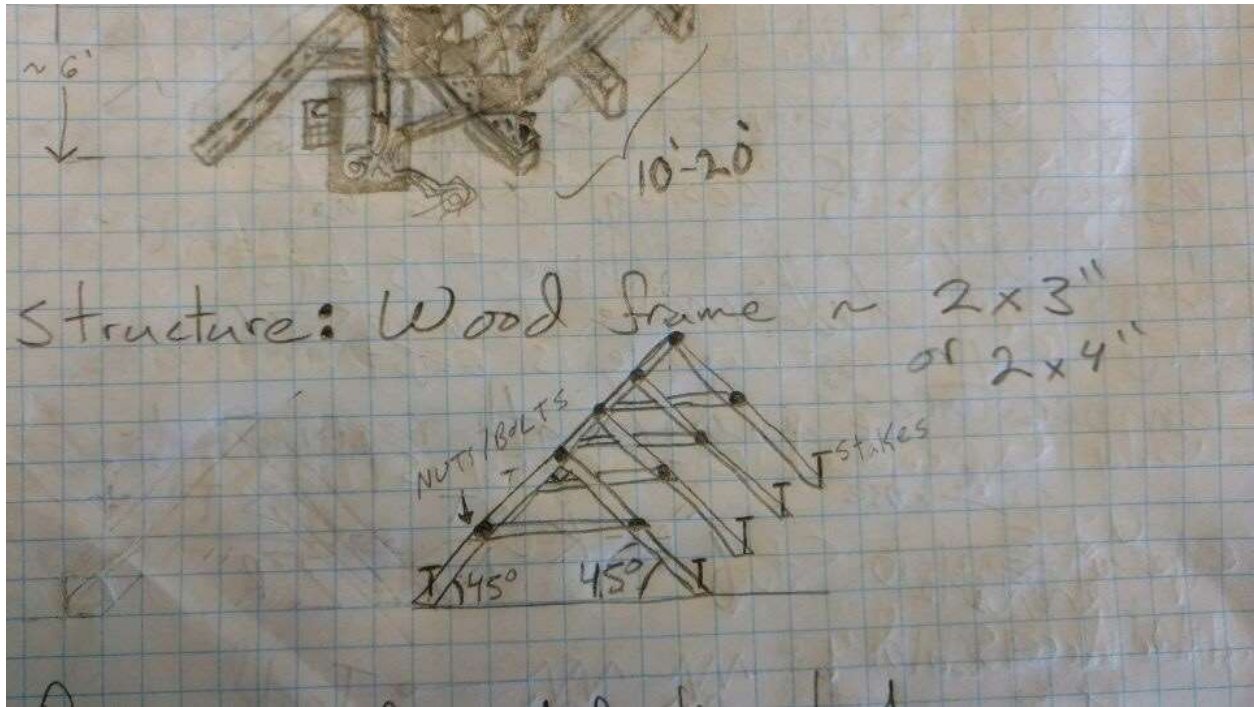 ~ 6'
10'-20'
Structure: Wood frame ~ 2x3"
or 2x4"
NUTS/BOLTS
Stakes
45° 45°